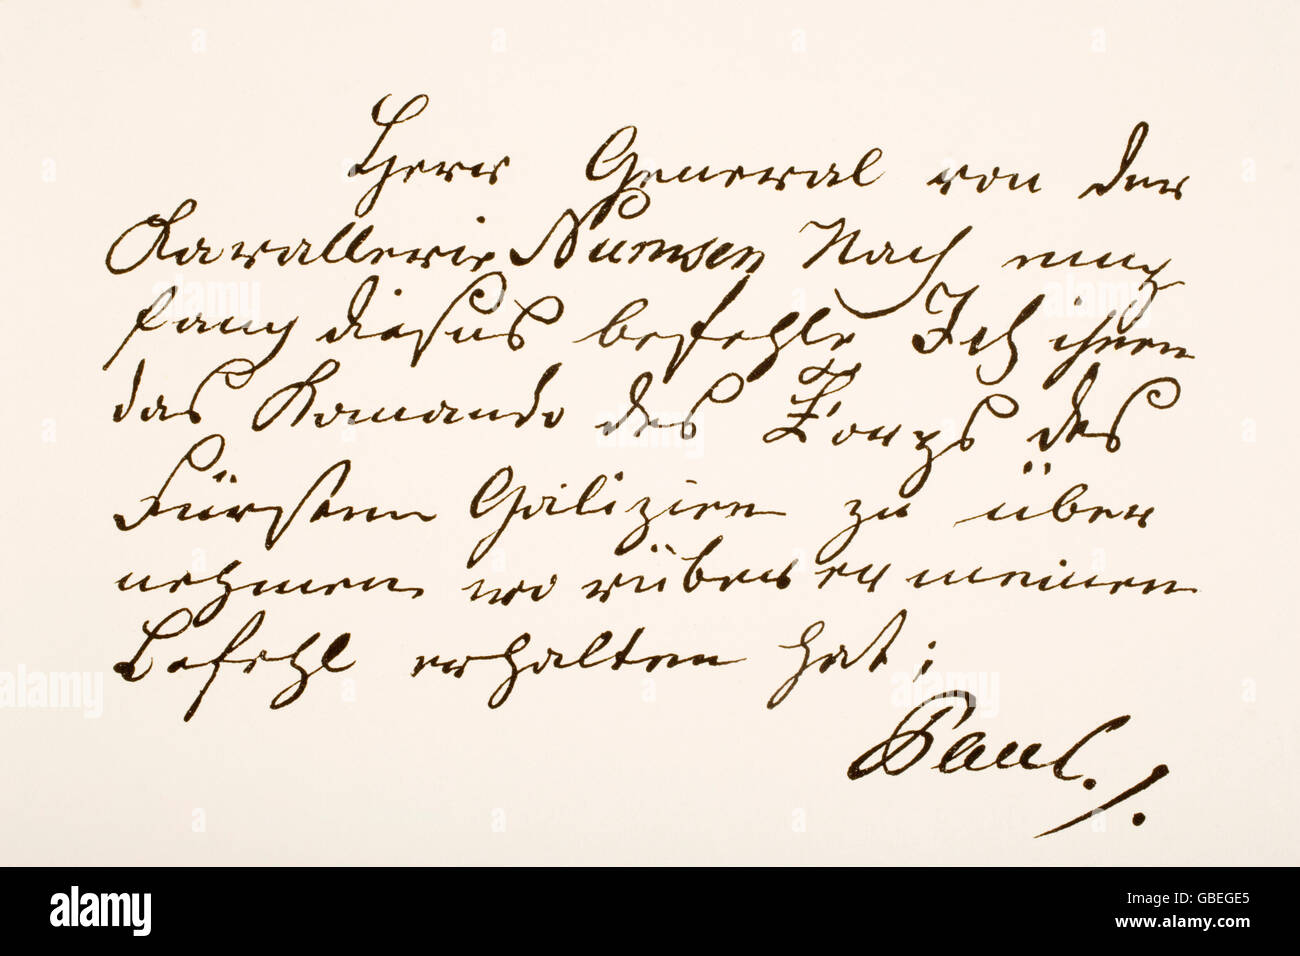 Herr General von der
Kavallerie Numsen Nach emp
fang dieses befehle Ich ihnen
das Komando des Korps des
Fürsten Galizien zu über
nehmen wo rüber er meinen
Befehl erhalten hat;
Paul./.
alamy
Image ID: GBEGE5
www.alamy.com